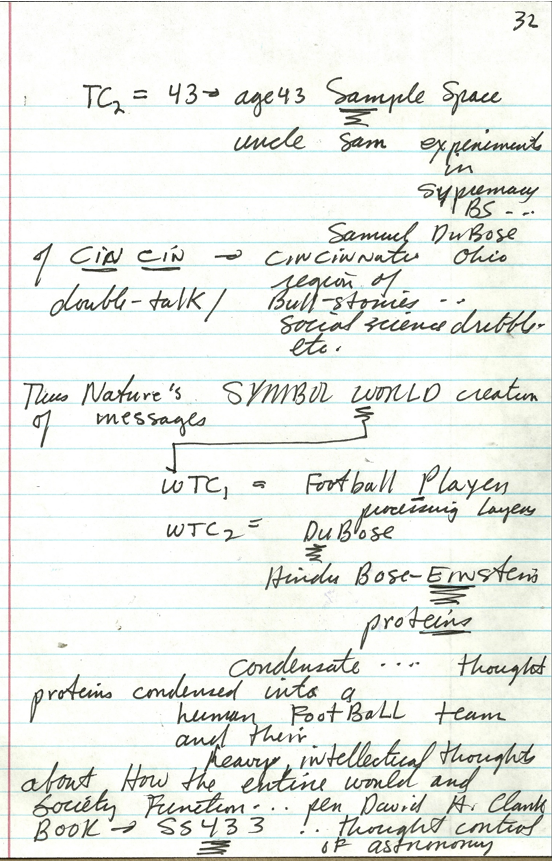 32
TC2 = 43 → age 43 Sample Space
uncle Sam experiments
in
sypremacy
BS ...
Samuel DuBose
of CIN CIN → CINCINNATI Ohio
region of
double-talk / Bull-stories ..
social science dribble-
etc.
Thus Nature's SYMBOL WORLD creation
of messages
WTC1 = Football Player
processing Layers
WTC2 = DuBose
Hindu Bose-Einstein
proteins
condensate .... thought
proteins condensed into a
human FootBall team
and their
heavy, intellectual thoughts
about How the entire world and
society Function ... per David H. Clark
BOOK → SS433 !.. thought control
of astronomy